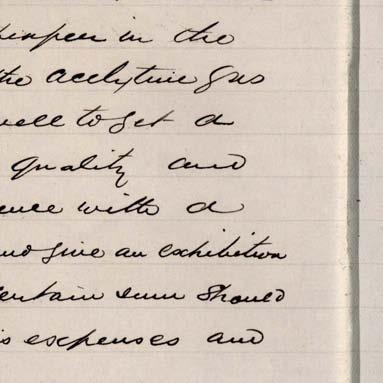 in the
the acelytine gas
well to get a
quality and
with a
and give an exhibition
certain sum should
is expenses and